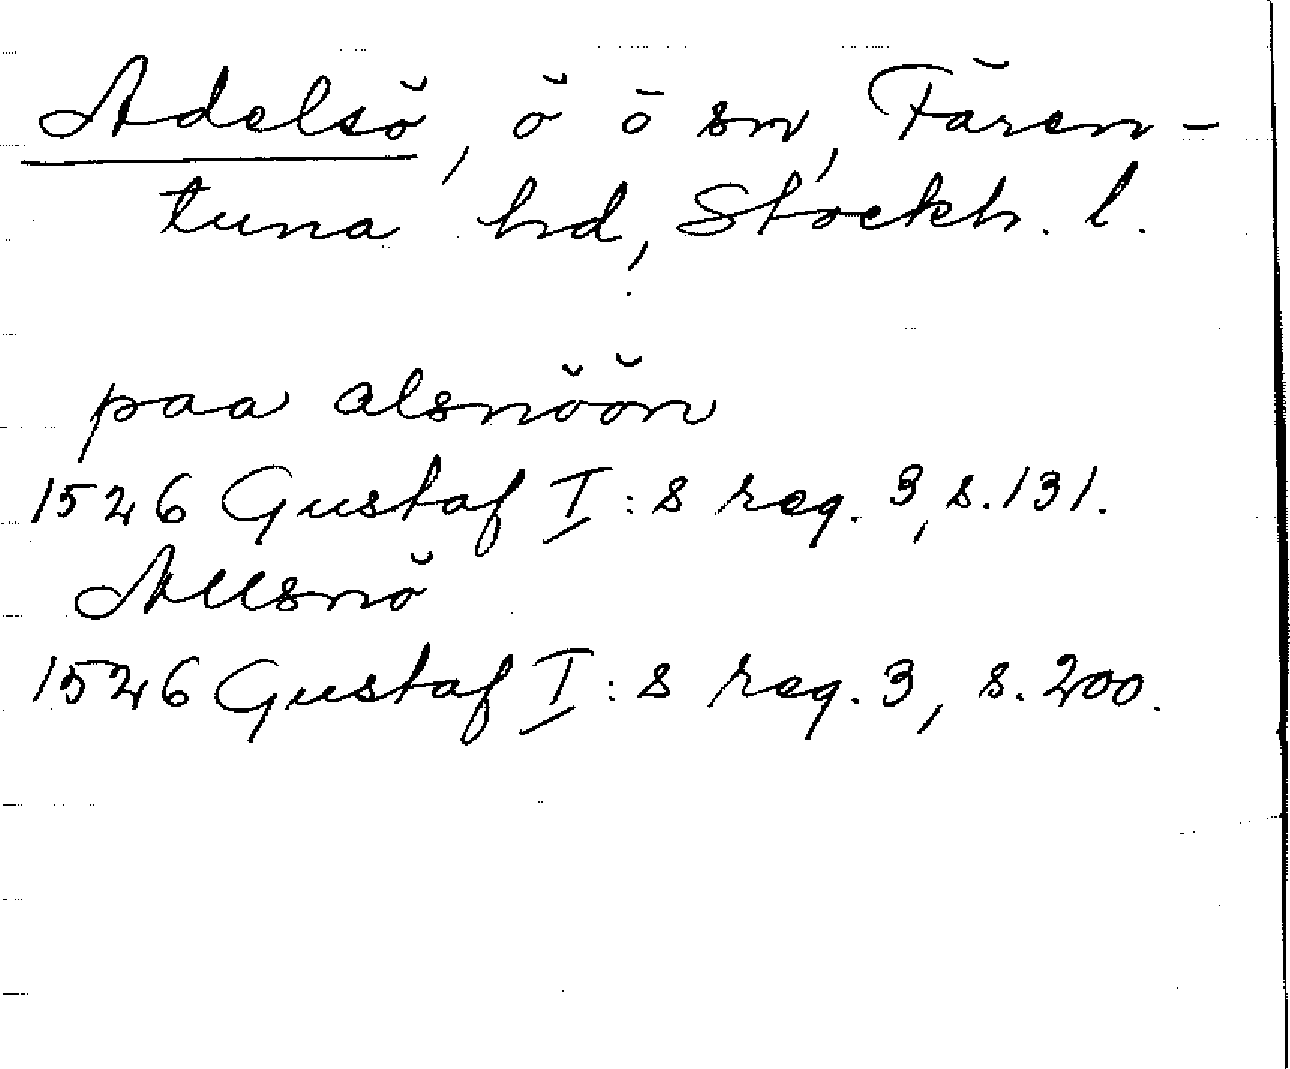 Adelsö, ö o sn, Fären-
tuna hd, Stockh. l.
paa alsnöön
1526 Gustaf I:s reg. 3, s. 131.
Allsnö
1526 Gustaf I:s reg. 3, s. 200.